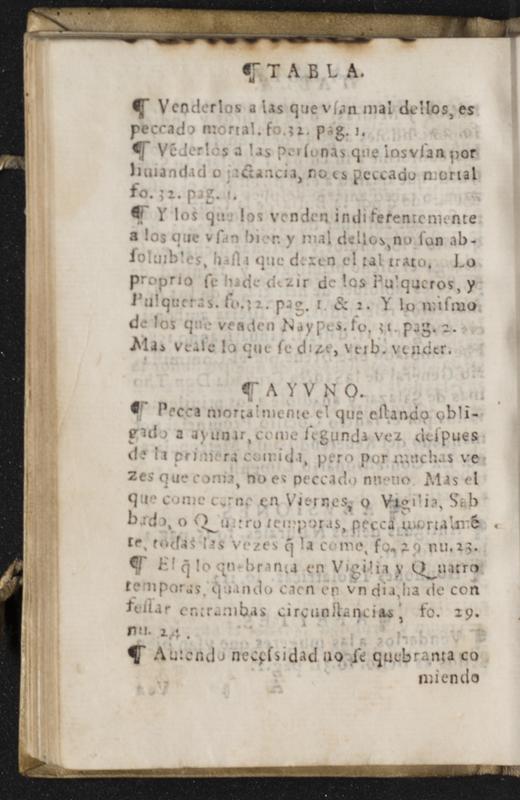 ¶ TABLA.
¶ Venderlos a las que vſan mal dellos, es
peccado mortal. fo. 32. pag. 1.
¶ Vẽderlos a las perſonas que los vſan por
liuiandad o jactancia, no es peccado mortal
fo. 32. pag. 1.
¶ Y los que los venden indiferentemente
a los que vſan bien y mal dellos, no ſon ab-
ſoluibles, haſta que dexen el tal trato. Lo
proprio ſe ha de dezir de los Pulqueros, y
Pulqueras. fo. 32. pag. 1. & 2. Y lo miſmo
de los que venden Naypes. fo. 31. pag. 2.
Mas veaſe lo que ſe dize, verb. vender.
¶ AYVNO.
¶ Pecca mortalmente el que eſtando obli-
gado a ayunar, come ſegunda vez deſpues
de la primera comida, pero por muchas ve
zes que coma, no es peccado nueuo. Mas el
que come carne en Viernes, o Vigilia, Sab
bado, o Quatro temporas, pecca mortalmẽ
te, todas las vezes q̃ la come, fo. 29 nu. 23.
¶ El q̃ lo quebranta en Vigilia y Quatro
temporas, quando caen en vn dia, ha de con
feſſar entrambas circunſtancias, fo. 29.
nu. 24.
¶ Auiendo neceſsidad no ſe quebranta co
miendo